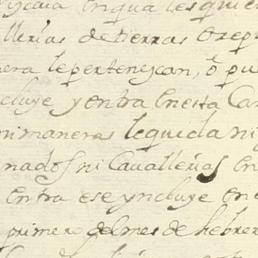 izcaia en qualesquier
llerias de tierras o zepr
nera le pertenezcan, o pu
cluye y entra en esta Car
ni maneras le queda ni
nados ni Cavallerias en
entra ese yncluye en e
primero del mes de hebrer